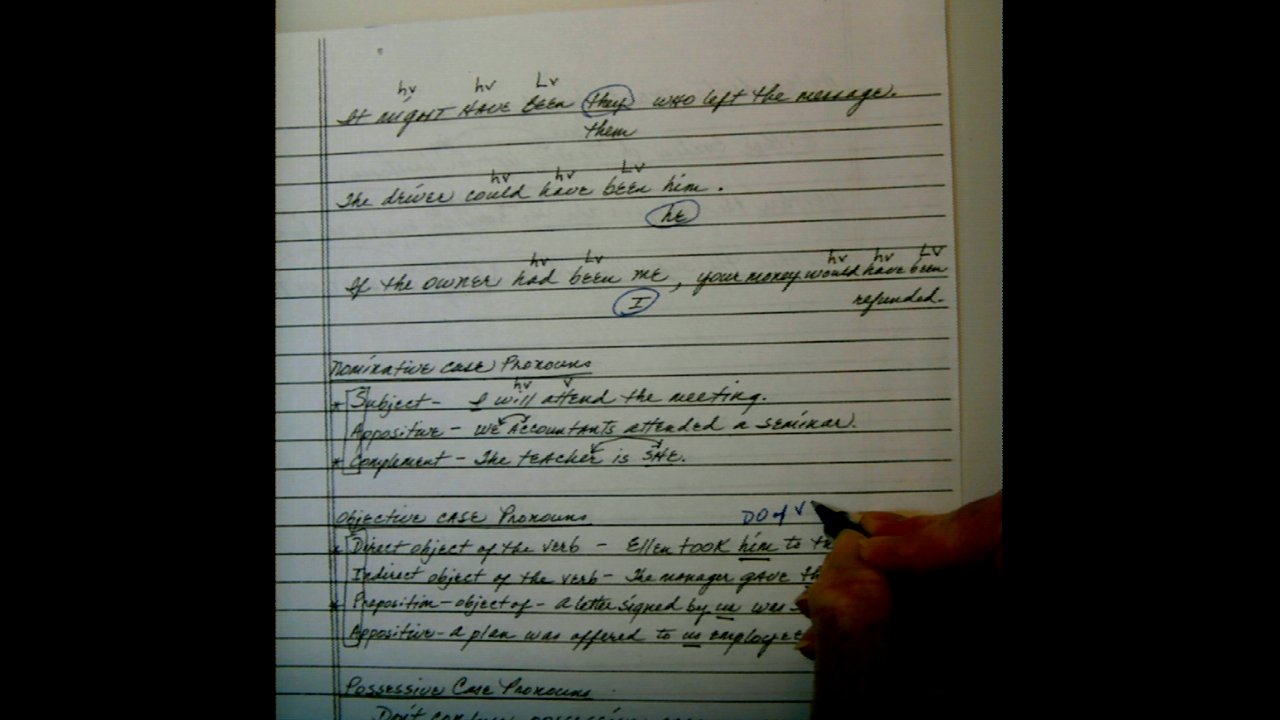 hv hv Lv
It might HAVE BEEN they who left the message.
them
hv hv Lv
The driver could have been him.
he
hv Lv hv hv LV
If the owner had been me, your money would have been
I refunded.
Nominative case Pronouns
hv v
* Subject - I will attend the meeting.
Appositive - We Accountants attended a seminar.
* Complement - The teacher is SHE.
Objective CASE Pronouns DO of V
* Direct object of the verb - Ellen took him to
Indirect object of the verb - The manager gave
* Preposition - object of - A letter signed by us was
Appositive - a plan was offered to us
Possessive Case Pronouns
Don't